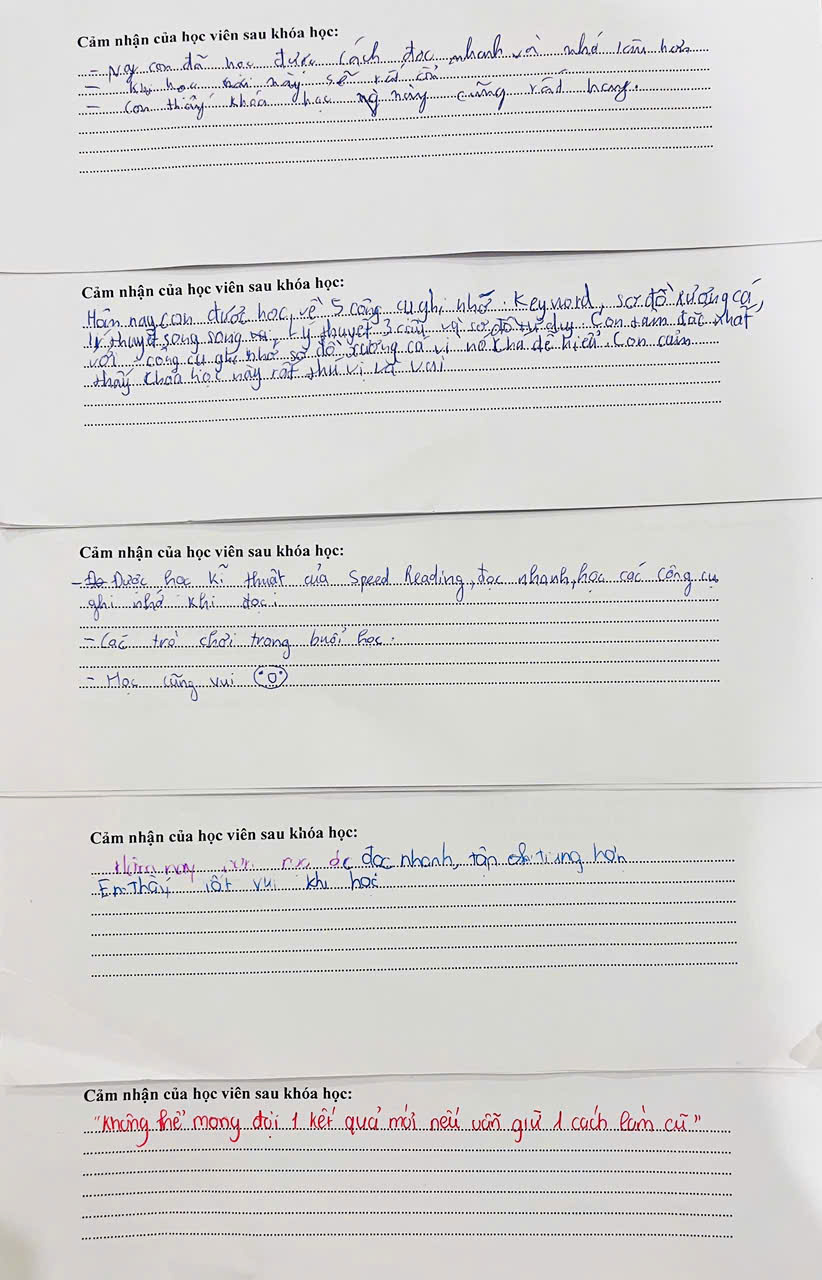 Cảm nhận của học viên sau khóa học:
- Ng con đã học được cách đọc nhanh và nhớ lâu hơn
- khi học này sẽ rất
- Con thấy khóa học ng này cũng rất hay.
Cảm nhận của học viên sau khóa học:
Hôm nay con được học về 5 công cụ ghi nhớ: Keyword, sơ đồ xương cá,
lý thuyết song song, Lý thuyết 3 câu và sơ đồ tư duy. Con tâm đắc nhất
với công cụ ghi nhớ sơ đồ xương cá vì nó khá dễ hiểu. Con cảm
thấy khóa học này rất thú vị và vui
Cảm nhận của học viên sau khóa học:
- Được học kĩ thuật của Speed Reading, đọc nhanh, học các công cụ
ghi nhớ khi đọc.
- Các trò chơi trong buổi học.
- Học cũng vui
Cảm nhận của học viên sau khóa học:
Hôm nay đọc nhanh, tập trung hơn
Em thấy rất vui khi học
Cảm nhận của học viên sau khóa học:
"Không thể mong đợi 1 kết quả mới nếu vẫn giữ 1 cách làm cũ"